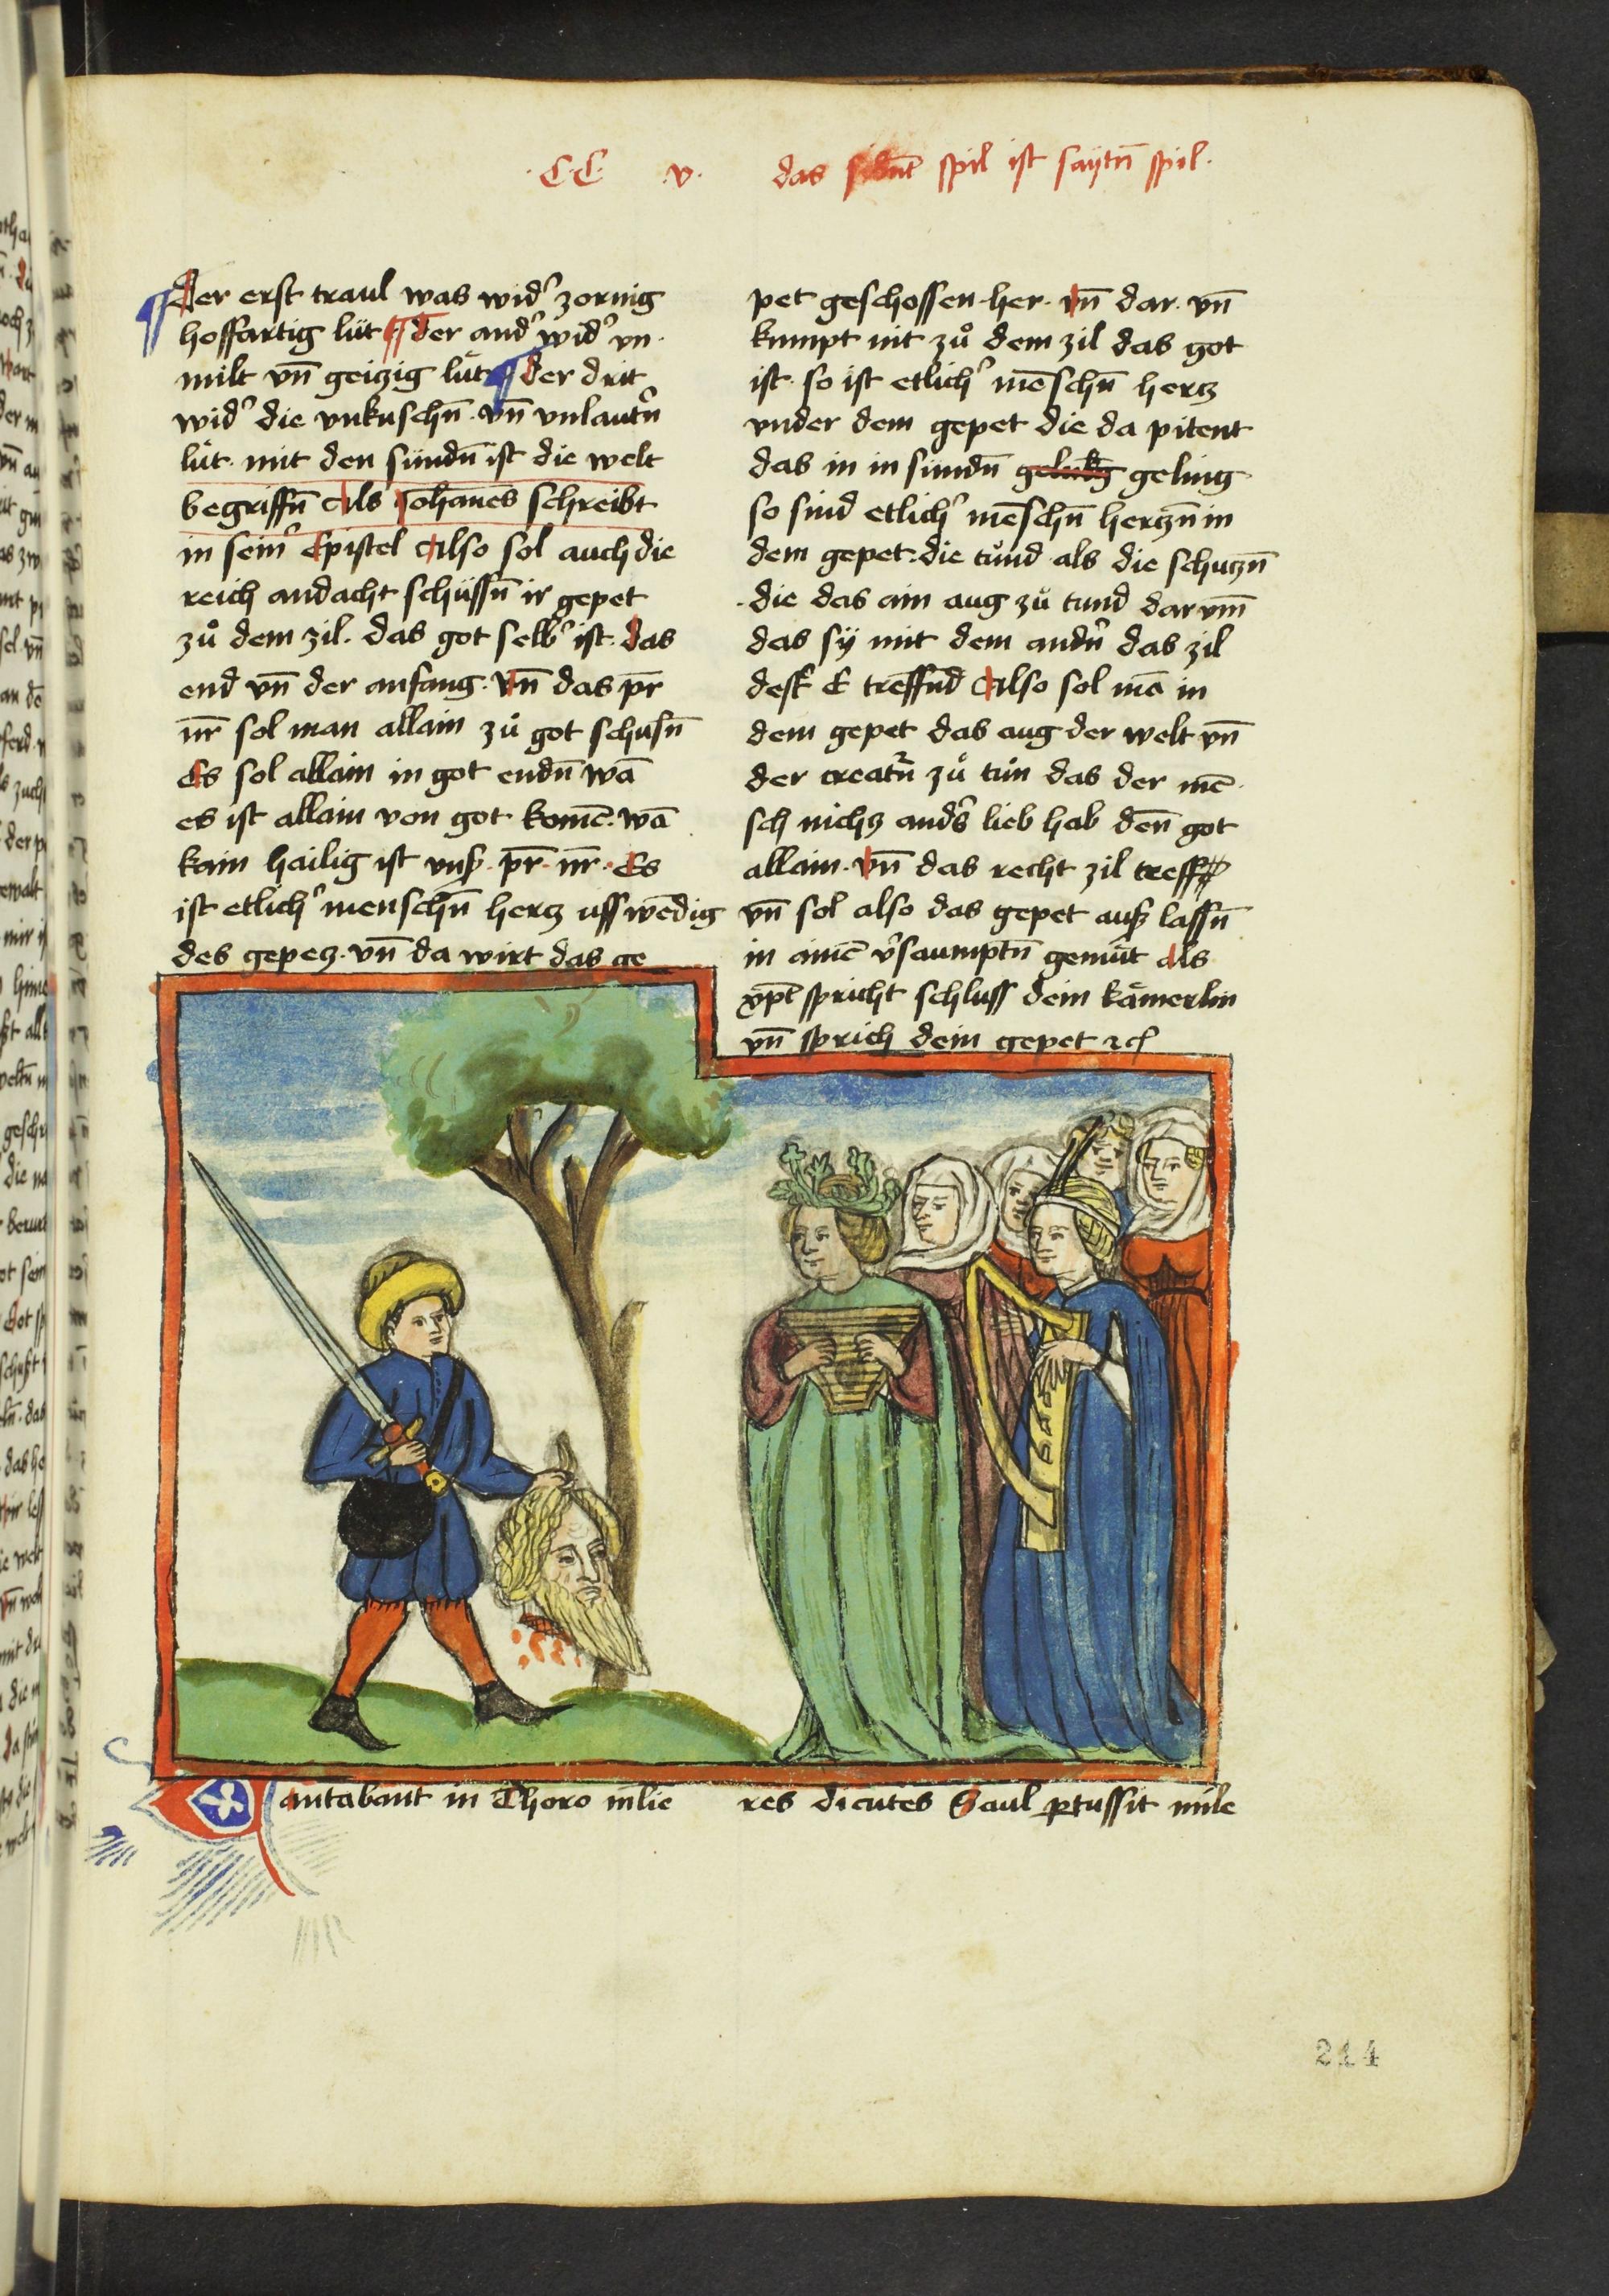 ·CC· ·v· das sibent spil ist saÿtn̄ spil·
Der erst traul was wid᾽ zornig
hoffartig lüt ¶ der and᾽ wid᾽ vn·
milt vn̄ geitzig lüt ¶ der drit
wid᾽ die vnkuschn̄· vn̄ vnlautn̄
lüt· mit den sündn̄ ist die welt
begriffn̄ Als Johanēs schreibt
in sein᾽ Epistel Also sol auch die
reich andacht schüssn̄ ir gepet
zů dem zil· das got selb᾽ ist· das
end vn̄ der anfang· Vn̄ das pr̄
nr̄ sol man allain zů got schusn̄
Es sol allain in got endn̄ wā
es ist allain von got komē· wā
kain hailig ist vnß· pr̄· nr̄· Es
ist etlich᾽ menschn̄ hertz uss wēdig
des gepetz· vn̄ da wirt das ge
pet geschossen· her· vn̄ dar· vn̄
kumpt nit zů dem zil das got
ist· so ist etlich᾽ mēschn̄ hertz
vnder dem gepet die da pitent
das in in sündn̄ geling·
so sind etlich᾽ mēschn̄ hertzn̄ in
dem gepet· die tůnd als die schutzn̄
·die das ain aug zů tund dar vm̄
das sÿ mit dem andn̄ das zil
dest E treffnd Also sol mā in
dem gepet das aug der welt vn̄
der creatn̄ zů tůn das der mē·
sch nichtz and᾽s lieb hab den̄ got
allain· vn̄ das recht zil treff
vn̄ sol also das gepet auß lassn̄
in ainē v᾽saumptn̄ gemüt als
xp̄s spricht schluss dein kämerlin
vn̄ sprich dein gepet ⁊c̄
Cantabant in Choro mlie res dicutes Saul ꝑcussit mile
214